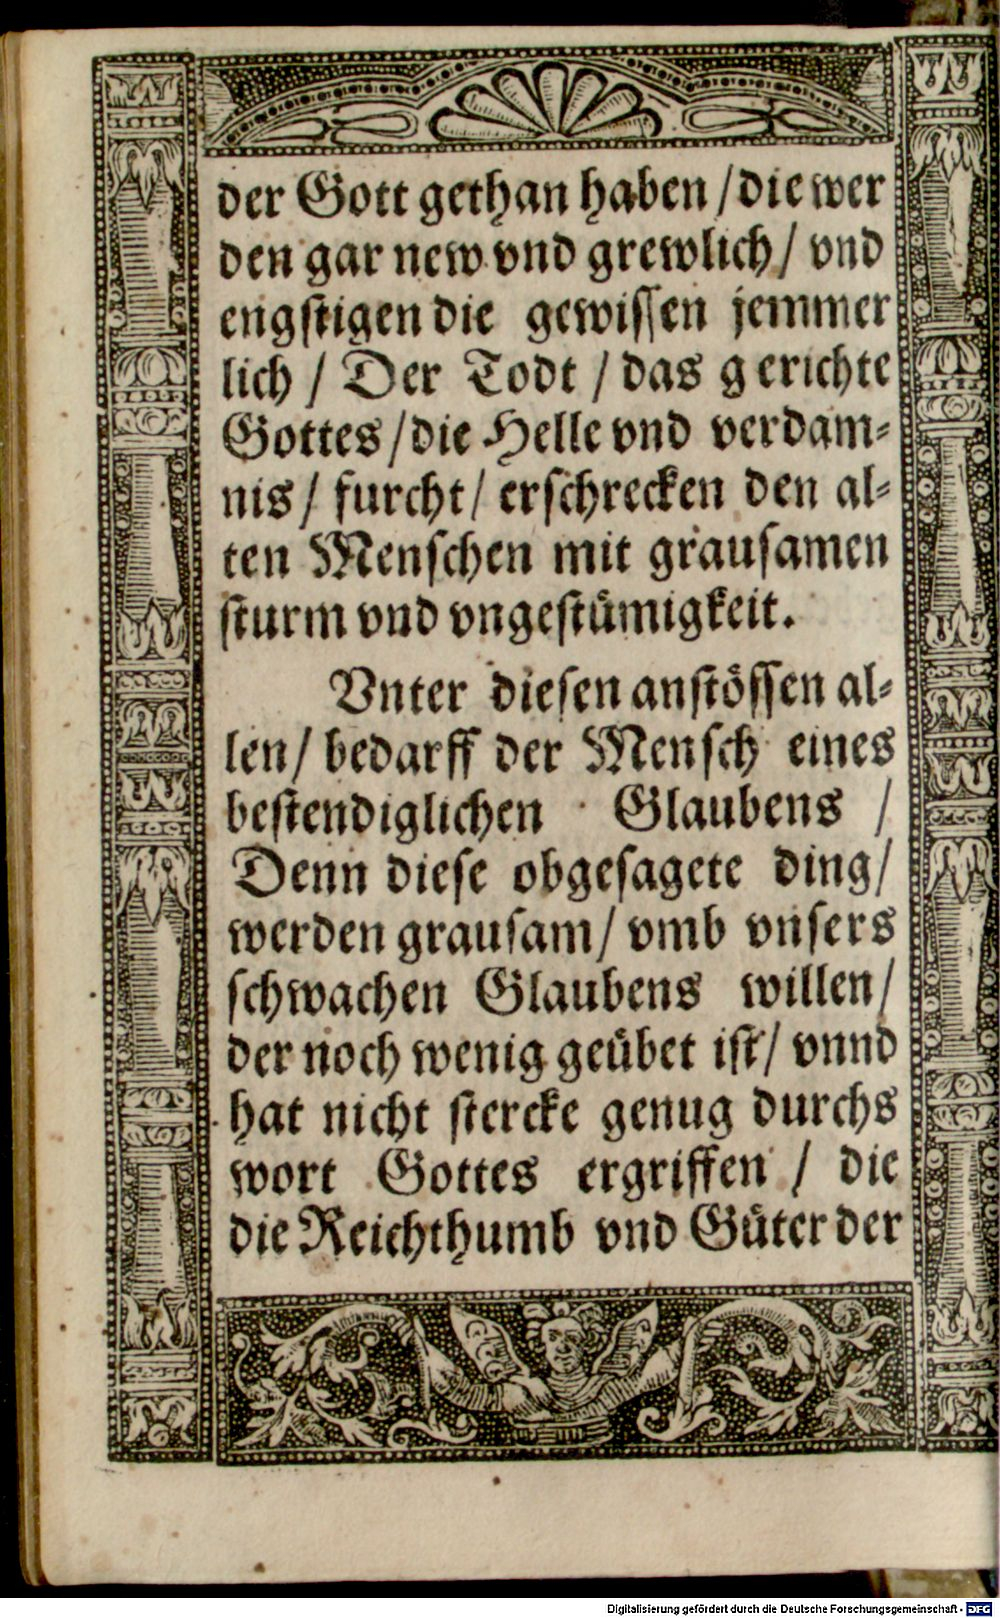 der Gott gethan haben / die wer
den gar new vnd grewlich / vnd
engstigen die gewissen jemmer
lich / Der Todt / das gerichte
Gottes / die Helle vnd verdam⸗
nis / furcht / erschrecken den al⸗
ten Menschen mit grausamen
sturm vnd vngestümigkeit.
Vnter diesen anstössen al⸗
len / bedarff der Mensch eines
bestendiglichen Glaubens /
Denn diese obgesagete ding /
werden grausam / vmb vnsers
schwachen Glaubens willen /
der noch wenig geübet ist / vnnd
hat nicht stercke genug durchs
wort Gottes ergriffen / die
die Reichthumb vnd Güter der
Digitalisierung gefördert durch die Deutsche Forschungsgemeinschaft - DFG